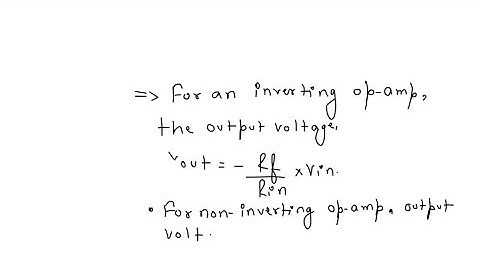 => For an inverting op-amp,
the output voltage,
Vout = - Rf/Rin x Vin.
• For non-inverting op-amp, output
volt.